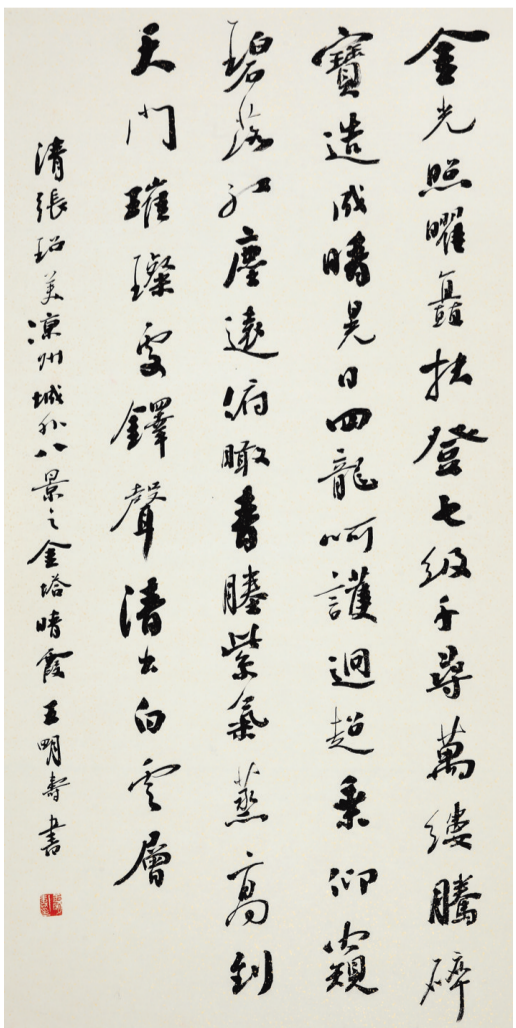 金光照曜矗扶登七级千尋萬縷騰碎
寶造成晴晃日四龍呵護迥超乘仰窺
碧落红塵遠俯瞰青塍紫氣蒸高到
天門璀璨處鐸聲清出白雲層
清張玿美凉州城外八景之金塔晴霞 王明壽書